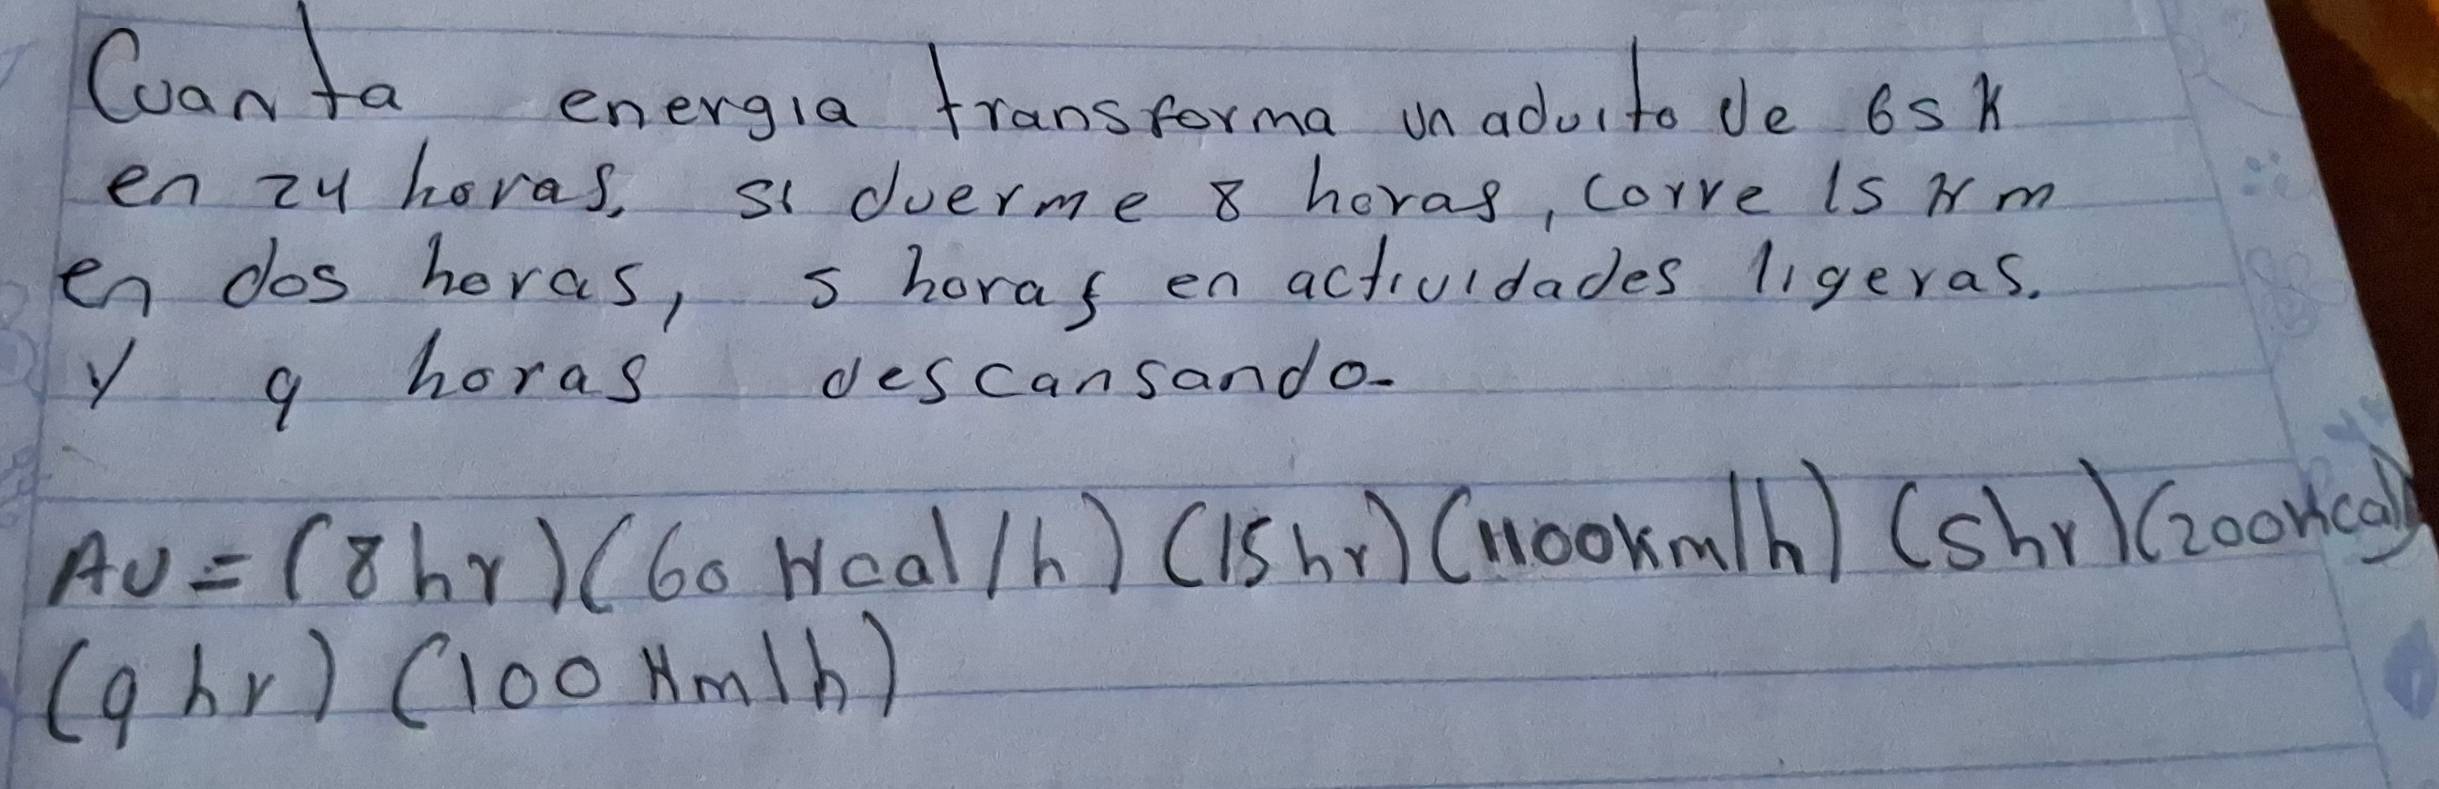 Cuanta energia transforma un adulto de 65 K
en 24 horas. si duerme 8 horas, corre 15 Km
en dos horas, 5 horas en actividades ligeras.
y 9 horas descansando-
AU = (8 hr) (60 Kcal/h) (15 hr) (1100 Km/h) (5 hr) (200 Kcal)
(9 hr) (100 Km/h)